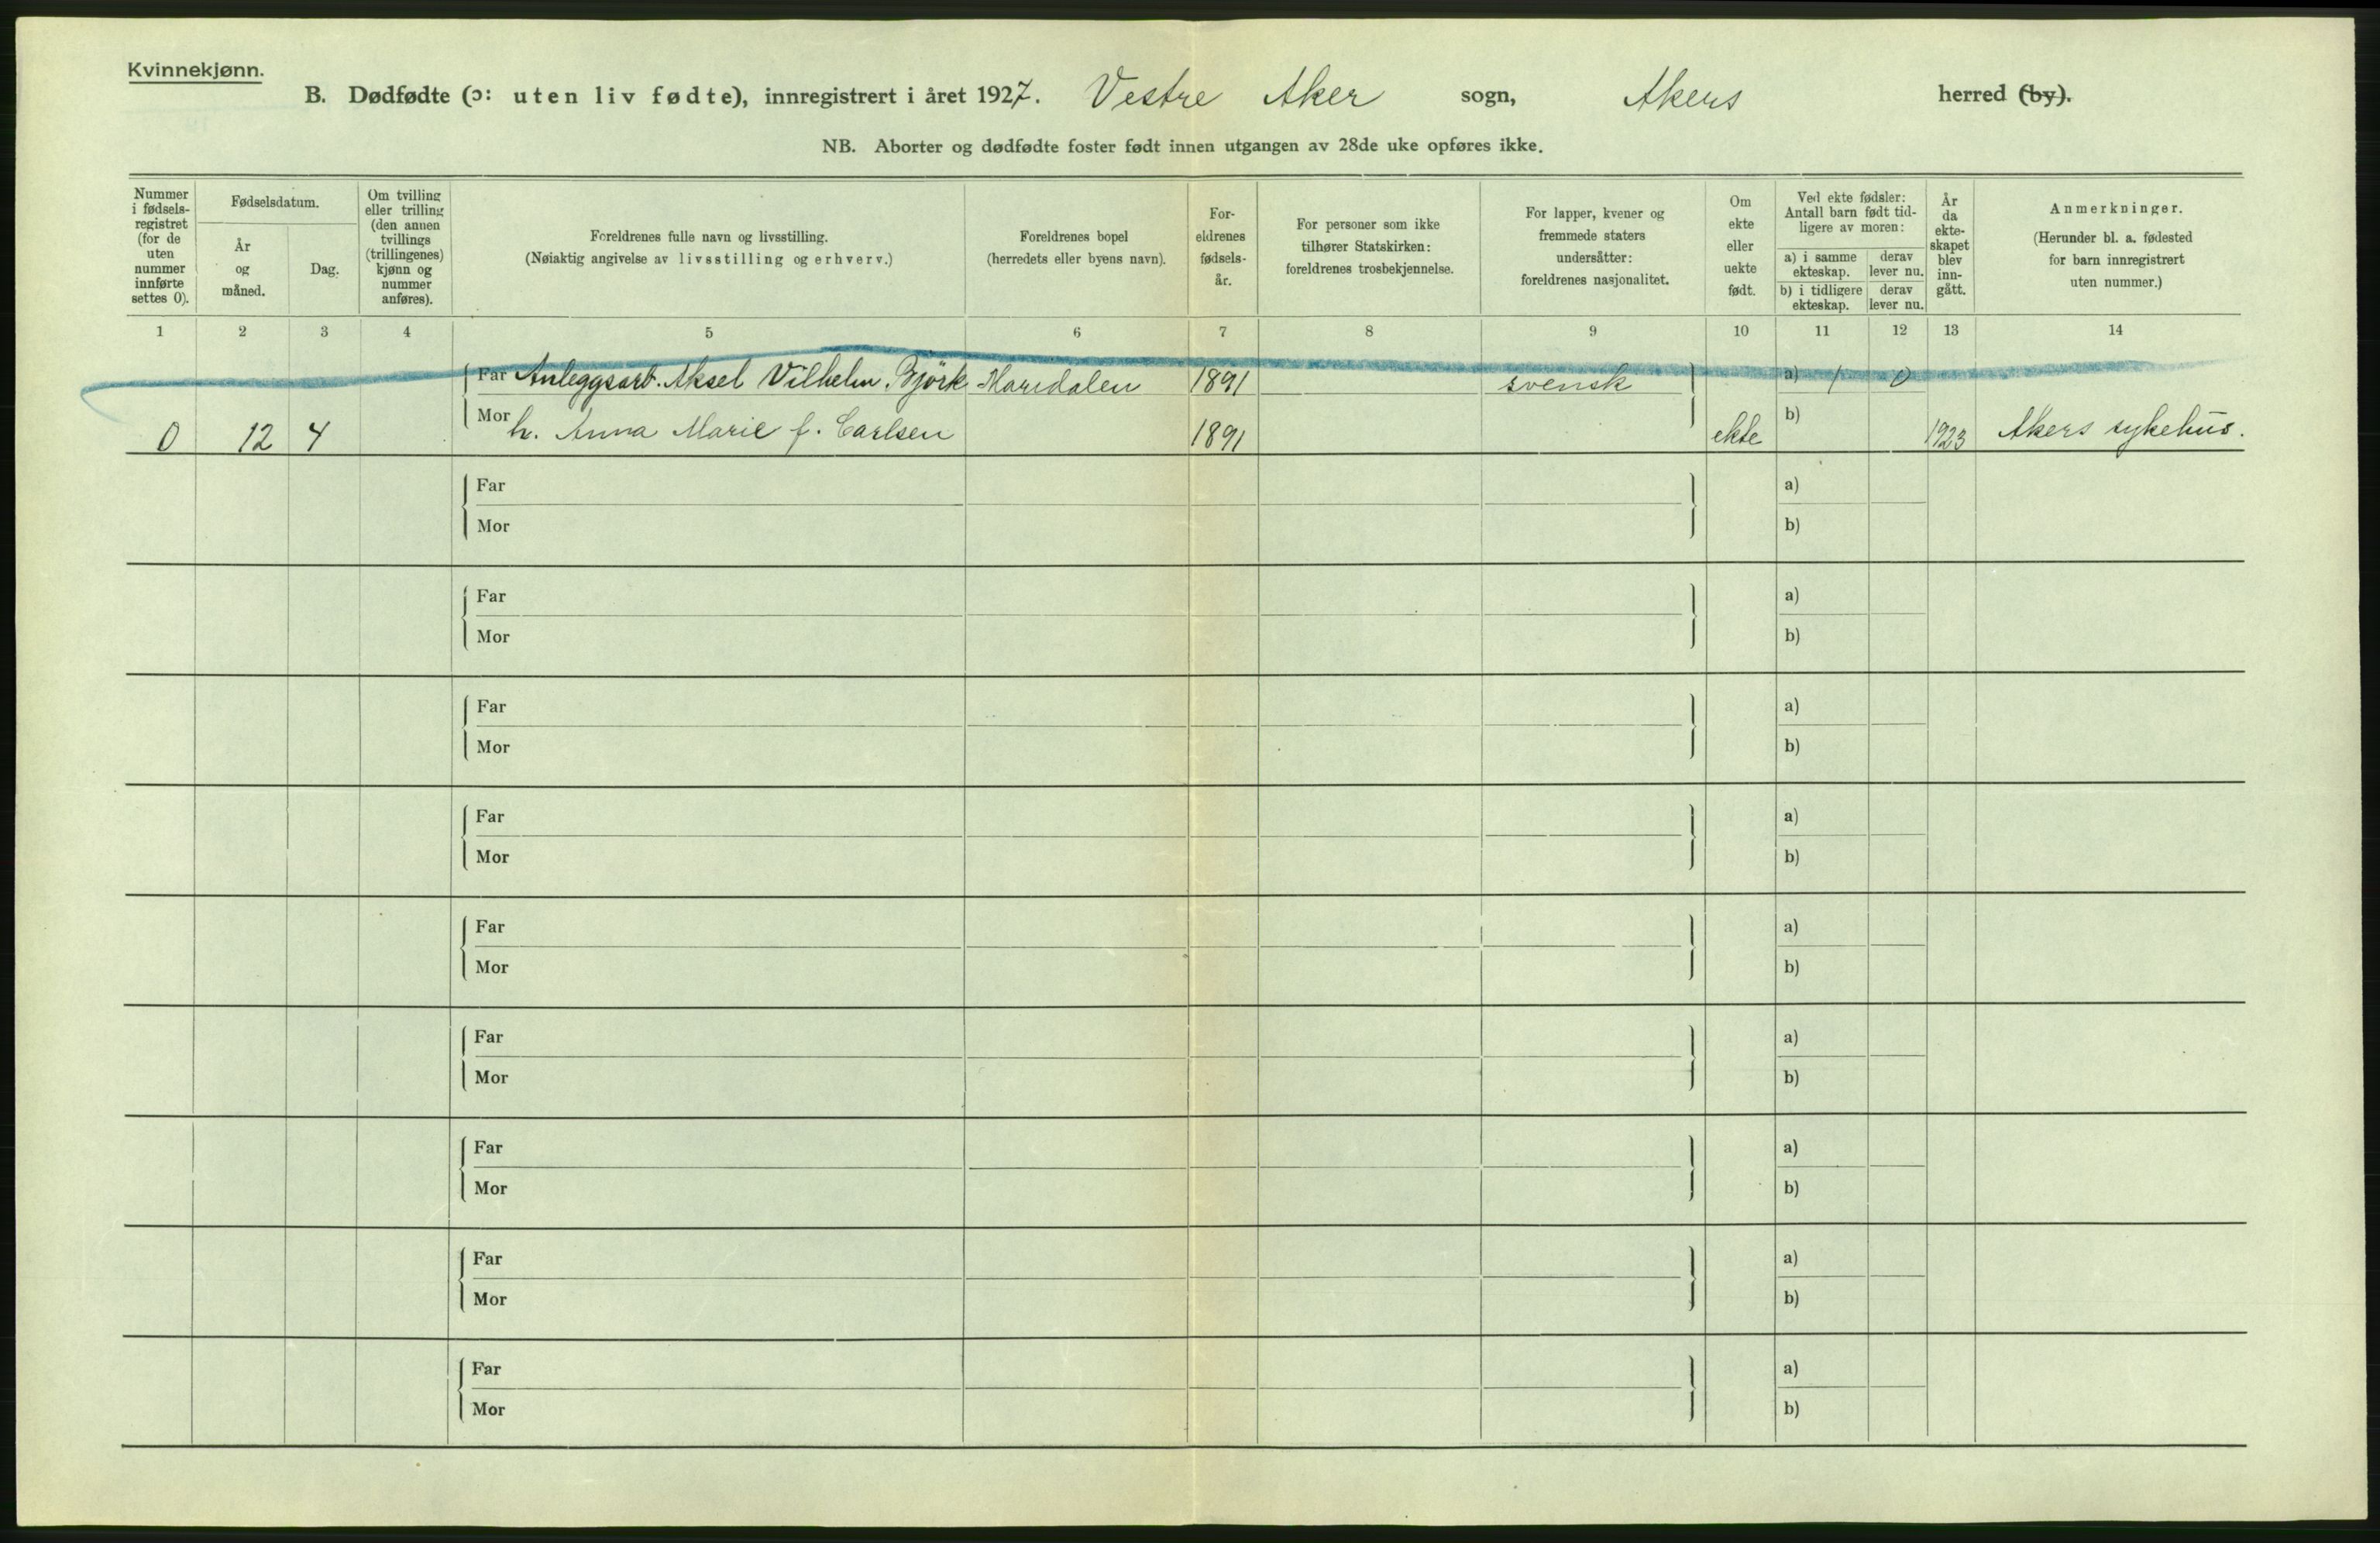 Kvinnekjønn.
B. Dødfødte (ɔ: uten liv fødte), innregistrert i året 1927. Vestre Aker sogn, Akers herred (by).
NB. Aborter og dødfødte foster født innen utgangen av 28de uke opføres ikke.
Nummer i fødsels-registret (for de uten nummer innførte settes 0).
Fødselsdatum.
År og måned.
Dag.
Om tvilling eller trilling (den annen tvillings (trillingenes) kjønn og nummer anføres).
Foreldrenes fulle navn og livsstilling.
(Nøiaktig angivelse av livsstilling og erhverv.)
Foreldrenes bopel
(herredets eller byens navn).
For-eldrenes fødsels-år.
For personer som ikke tilhører Statskirken: foreldrenes trosbekjennelse.
For lapper, kvener og fremmede staters undersåtter: foreldrenes nasjonalitet.
Om ekte eller uekte født.
Ved ekte fødsler: Antall barn født tid-ligere av moren:
a) i samme ekteskap.
derav lever nu.
b) i tidligere ekteskap.
derav lever nu.
År da ekte-skapet blev inn-gått.
Anmerkninger.
(Herunder bl. a. fødested for barn innregistrert uten nummer.)
1 2 3 4 5 6 7 8 9 10 11 12 13 14
Far Anleggsarb. Aksel Vilhelm Björk Maridalen 1891 svensk a) 1 0
0 12 4 Mor h. Anna Marie f. Carlsen 1891 ekte b) 1923 Akers sykehus.
Far a)
Mor b)
Far a)
Mor b)
Far a)
Mor b)
Far a)
Mor b)
Far a)
Mor b)
Far a)
Mor b)
Far a)
Mor b)
Far a)
Mor b)
Far a)
Mor b)